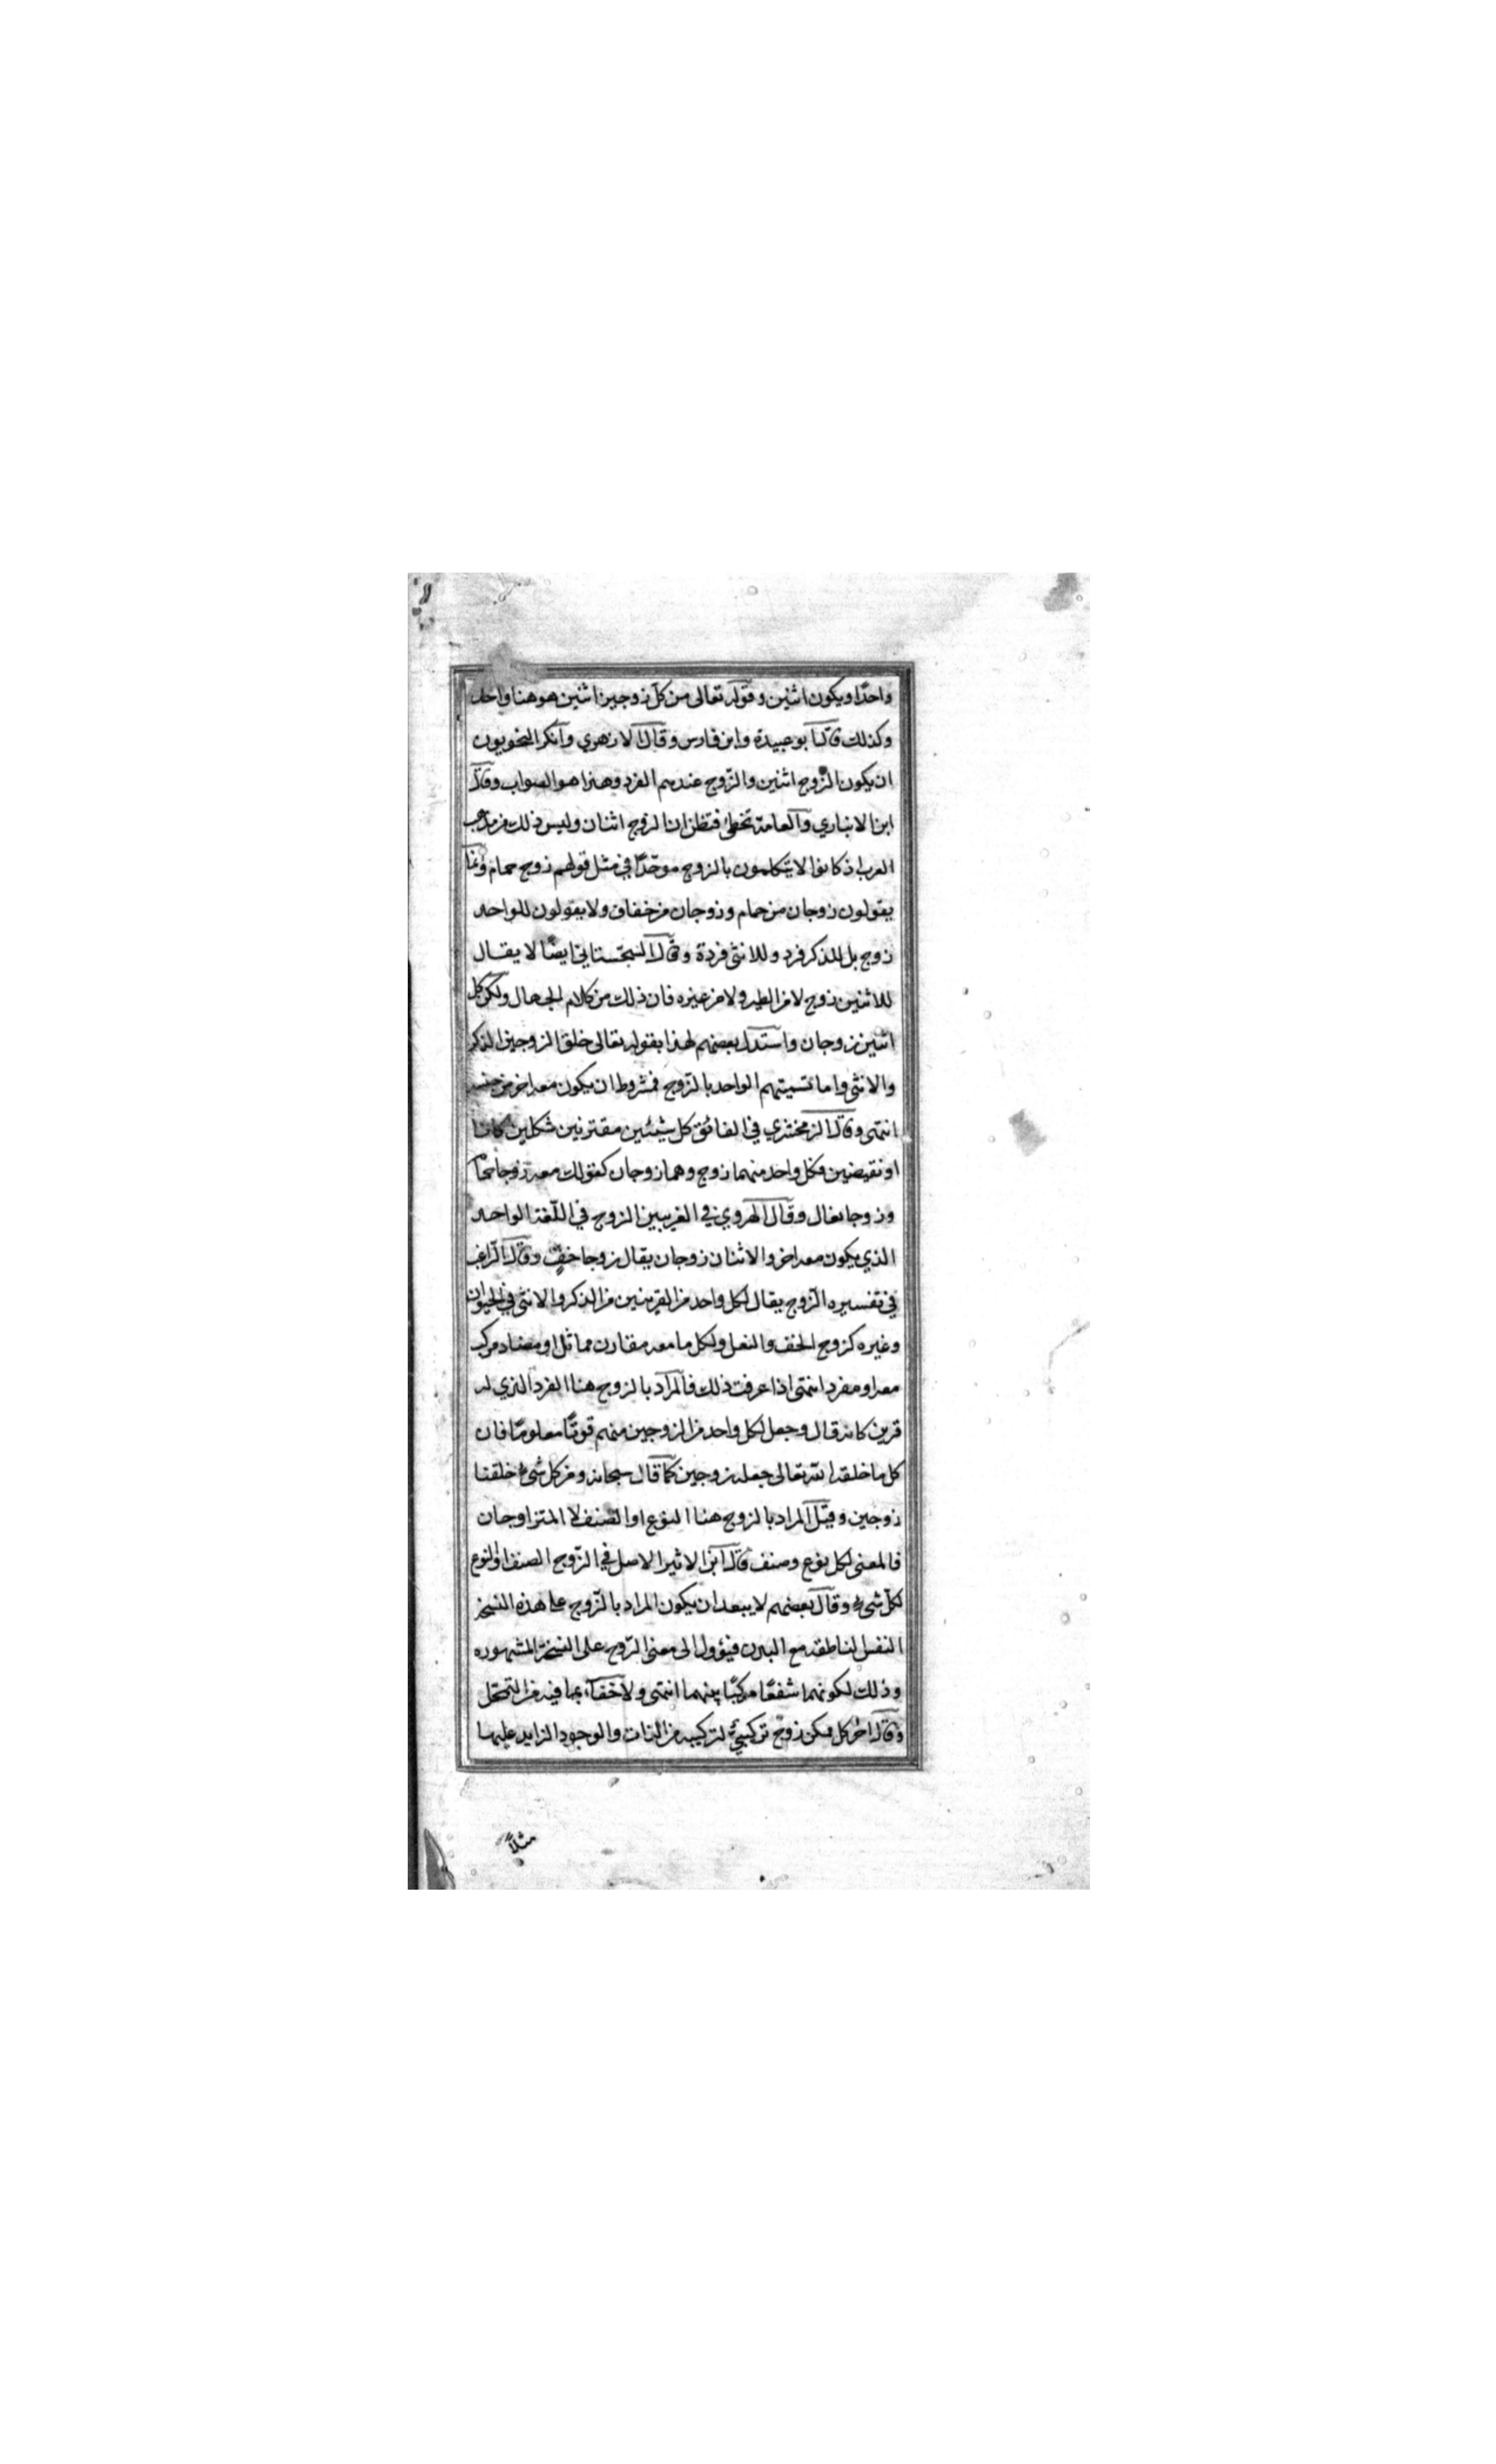 واحدًا ويكون اثنين وقوله تعالى من كل زوجين اثنين هو هنا واحد
وكذلك قال ابو عبيدة وابن فارس وقال الازهري وانكر النحويون
ان يكون الزوج اثنين والزوج عندهم الفرد وهذا هو الصواب وقال
ابن الانباري والعامة تخطئ فتظن ان الزوج اثنان وليس ذلك من مذهب
العرب اذ كانوا لا يتكلمون بالزوج موحّدًا في مثل قولهم زوج حمام وانما
يقولون زوجان من حمام وزوجان من خفاف ولا يقولون للواحد
زوج بل للذكر فرد وللانثى فردة وقال السجستاني ايضًا لا يقال
للاثنين زوج لا من الطير ولا من غيره فان ذلك من كلام الجهال ولكن كل
اثنين زوجان واستدل بعضهم لهذا بقوله تعالى خلق الزوجين الذكر
والانثى واما تسميتهم الواحد بالزوج فمشروط ان يكون معه اخر من جنسه
انتهى وقال الزمخشري في الفائق كل شيئين مقترنين شكلين كانا
او نقيضين فكل واحد منهما زوج وهما زوجان كقولك معه زوجا حمام
وزوجا نعال وقال الهروي في الغريبين الزوج في اللّغة الواحد
الذي يكون معه اخر والاثنان زوجان يقال زوجا خفٍّ وقال الرّاغب
في تفسيره الزّوج يقال لكل واحد من القرينين من الذكر والانثى في الحيوان
وغيره كزوج الخف والنعل ولكل ما معه مقارن مماثل او مضاد مركب
معه او مفرد انتهى اذا عرفت ذلك فالمراد بالزوج هنا الفرد الذي له
قرين كانه قال وجعل لكل واحد من الزوجين منهم قوتًا معلومًا فان
كل ما خلقه الله تعالى جعله زوجين كما قال سبحانه ومن كل شيء خلقنا
زوجين وقيل المراد بالزوج هنا النوع او الصّنف لا المتزاوجان
فالمعنى لكل نوع وصنف قال ابن الاثير الاصل في الزّوج الصنف او النوع
لكل شيء وقال بعضهم لا يبعد ان يكون المراد بالزّوج على هذه النسخة
النفس الناطقة مع البدن فيؤول الى معنى الرّوح على النسخة المشهوره
وذلك لكونهما شفعًا مركبًا بينهما انتهى ولا خفاء بما فيه من التمحّل
وقال اخر كل ممكن زوج تركيبيّ لتركيبه من الذات والوجود الزايد عليها
مثلاً